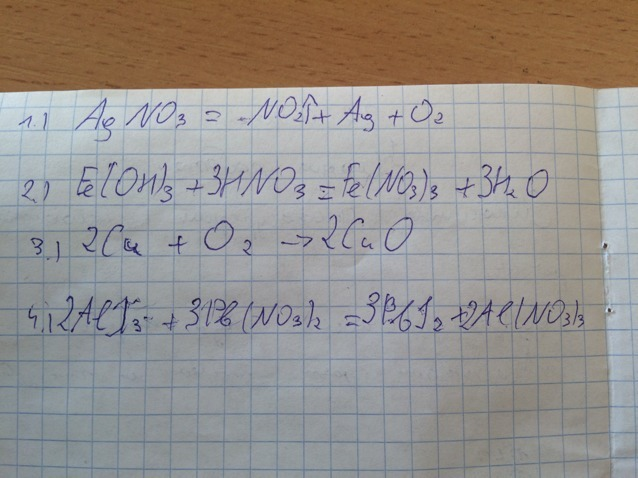 1.) AgNO₃ = NO₂↑ + Ag + O₂
2.) Fe(OH)₃ + 3HNO₃ = Fe(NO₃)₃ + 3H₂O
3.) 2Cu + O₂ → 2CuO
4.) 2AlJ₃ + 3Pb(NO₃)₂ = 3PbJ₂ + 2Al(NO₃)₃